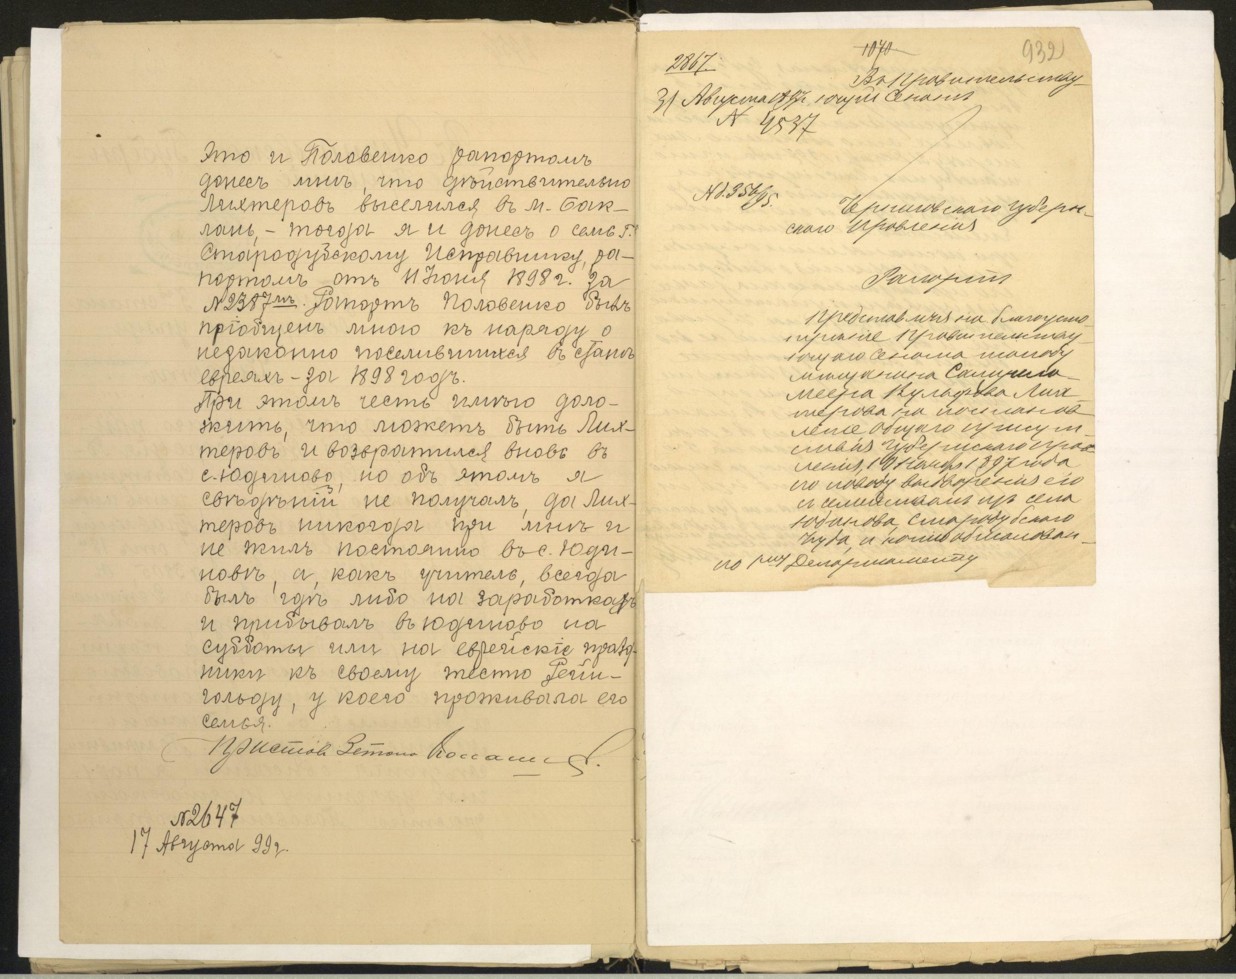 Это и Половенко рапортомъ
донесъ мнѣ, что дѣйствительно
Лихтеровъ выселился въ м. Бак-
лань, – тогда я и донесъ о семъ Г.
Стародубскому Исправнику, ра-
портомъ отъ Июня 1898 г. за
№2387мъ. Рапортъ Половенко былъ
пріобщенъ мною къ наряду о
незаконно поселившихся въ станѣ
евреяхъ – за 1898 годъ.
При этомъ честь имѣю доло-
жить, что можетъ быть Лих-
теровъ и возвратился вновь въ
с. Юдиново, но объ этомъ я
свѣдѣній не получалъ, да Лих-
теровъ никогда при мнѣ и
не жилъ постоянно въ с. Юди-
новѣ, а, какъ учитель, всегда
былъ гдѣ либо на заработкахъ
и прибывалъ въ Юдиново на
субботы или на еврейскіе празд-
ники къ своему тестю Рейн-
гольду, у коего проживала его
семья.
Приставъ 2 стана
№2647
17 Августа 99 г.
932
1070
2867
Въ Правительству-
31 Августа ющій Сенатъ
N 4537
Черниговскаго Губерн-
скаго Правления
Рапортъ
Представляя на благоусмо-
трѣние Правительству-
ющаго Сената жалобу
мѣщанина Самуила-
Меера Вульфова Лих-
терова на постанов-
ление общаго присут-
ствия Губернскаго Прав-
ления, 19 1897 года
по поводу выдворения его
съ семействомъ изъ села
Юдинова, Стародубскаго
уѣзда, и копию обжалован-
по 1му Департаменту